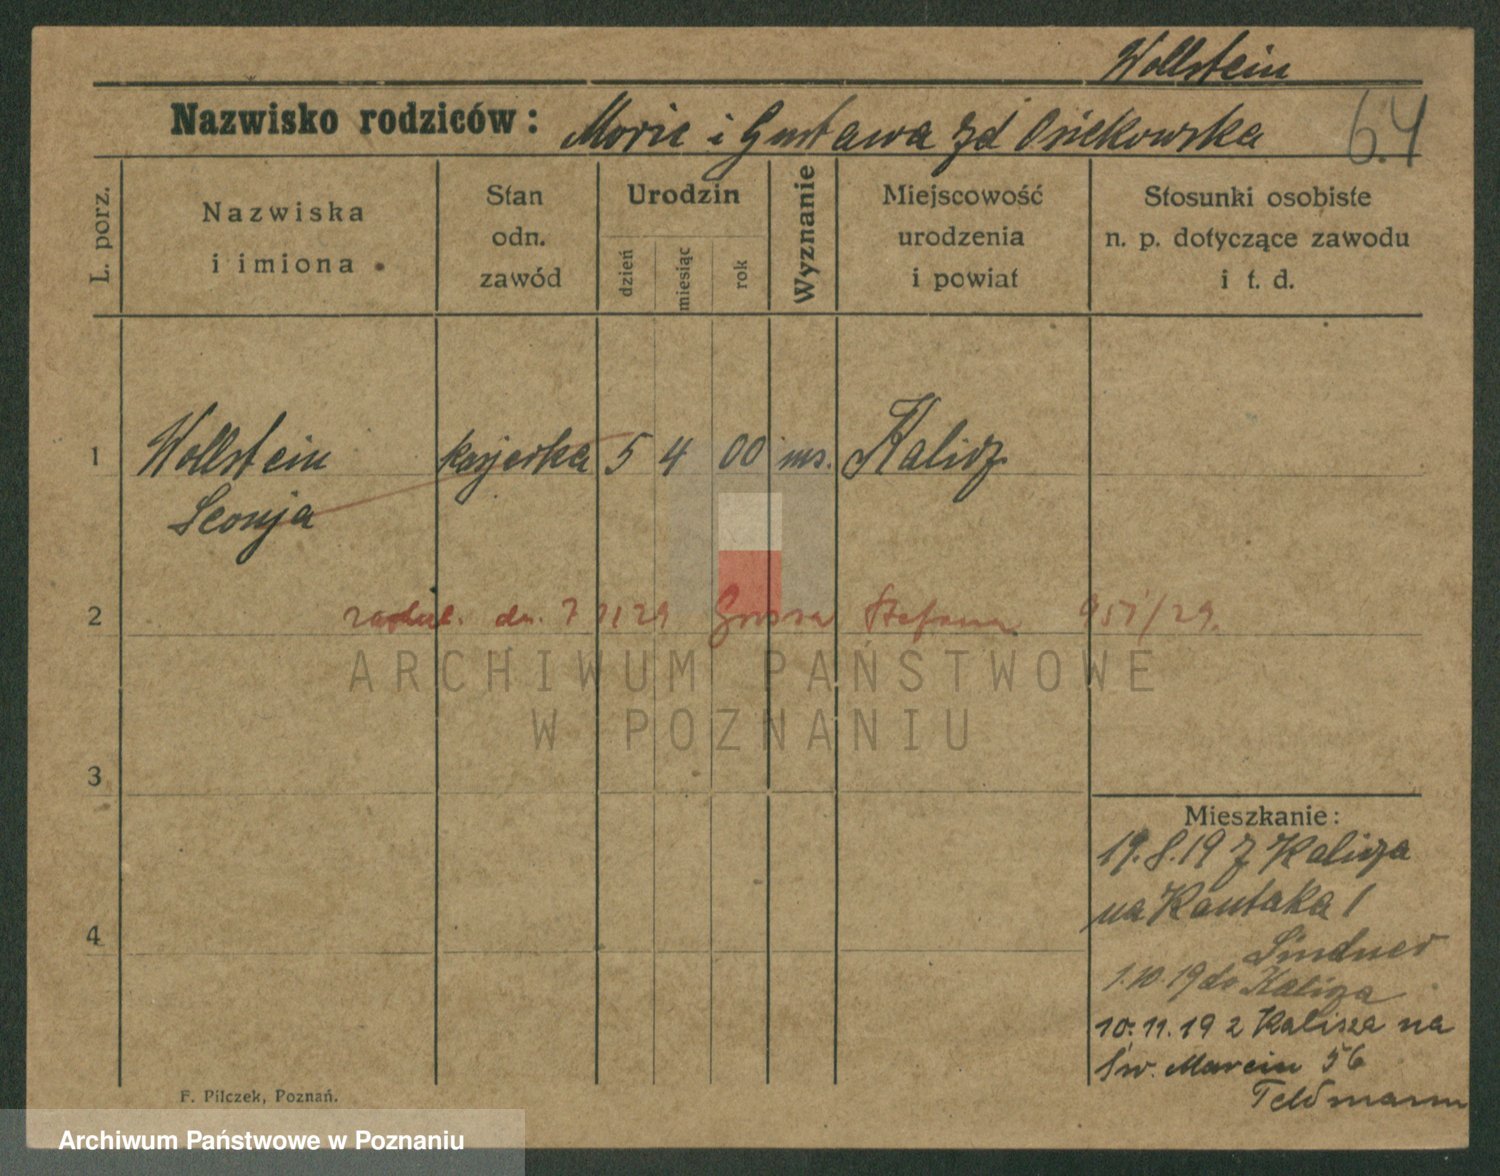 Wollstein
Nazwisko rodziców: Moric i Gustawa zd Osiekowska
64
L. porz.
Nazwiska i imiona
Stan odn. zawód
Urodzin
dzień
miesiąc
rok
Wyznanie
Miejscowość urodzenia i powiat
Stosunki osobiste n. p. dotyczące zawodu i t. d.
1 Wollstein kasjerka 5 4 00 ms. Kalisz
Leonja
2
zaślub. dn. 7 11 29 Stefana 951/29.
ARCHIWUM PAŃSTWOWE
W POZNANIU
3
Mieszkanie:
19.8.19 z Kalisza
na Kantaka 1
Lindner
1.10.19 do Kalisza
4
10.11.19 z Kalisza na
Św. Marcin 56
Feldmann
F. Pilczek, Poznań.
Archiwum Państwowe w Poznaniu